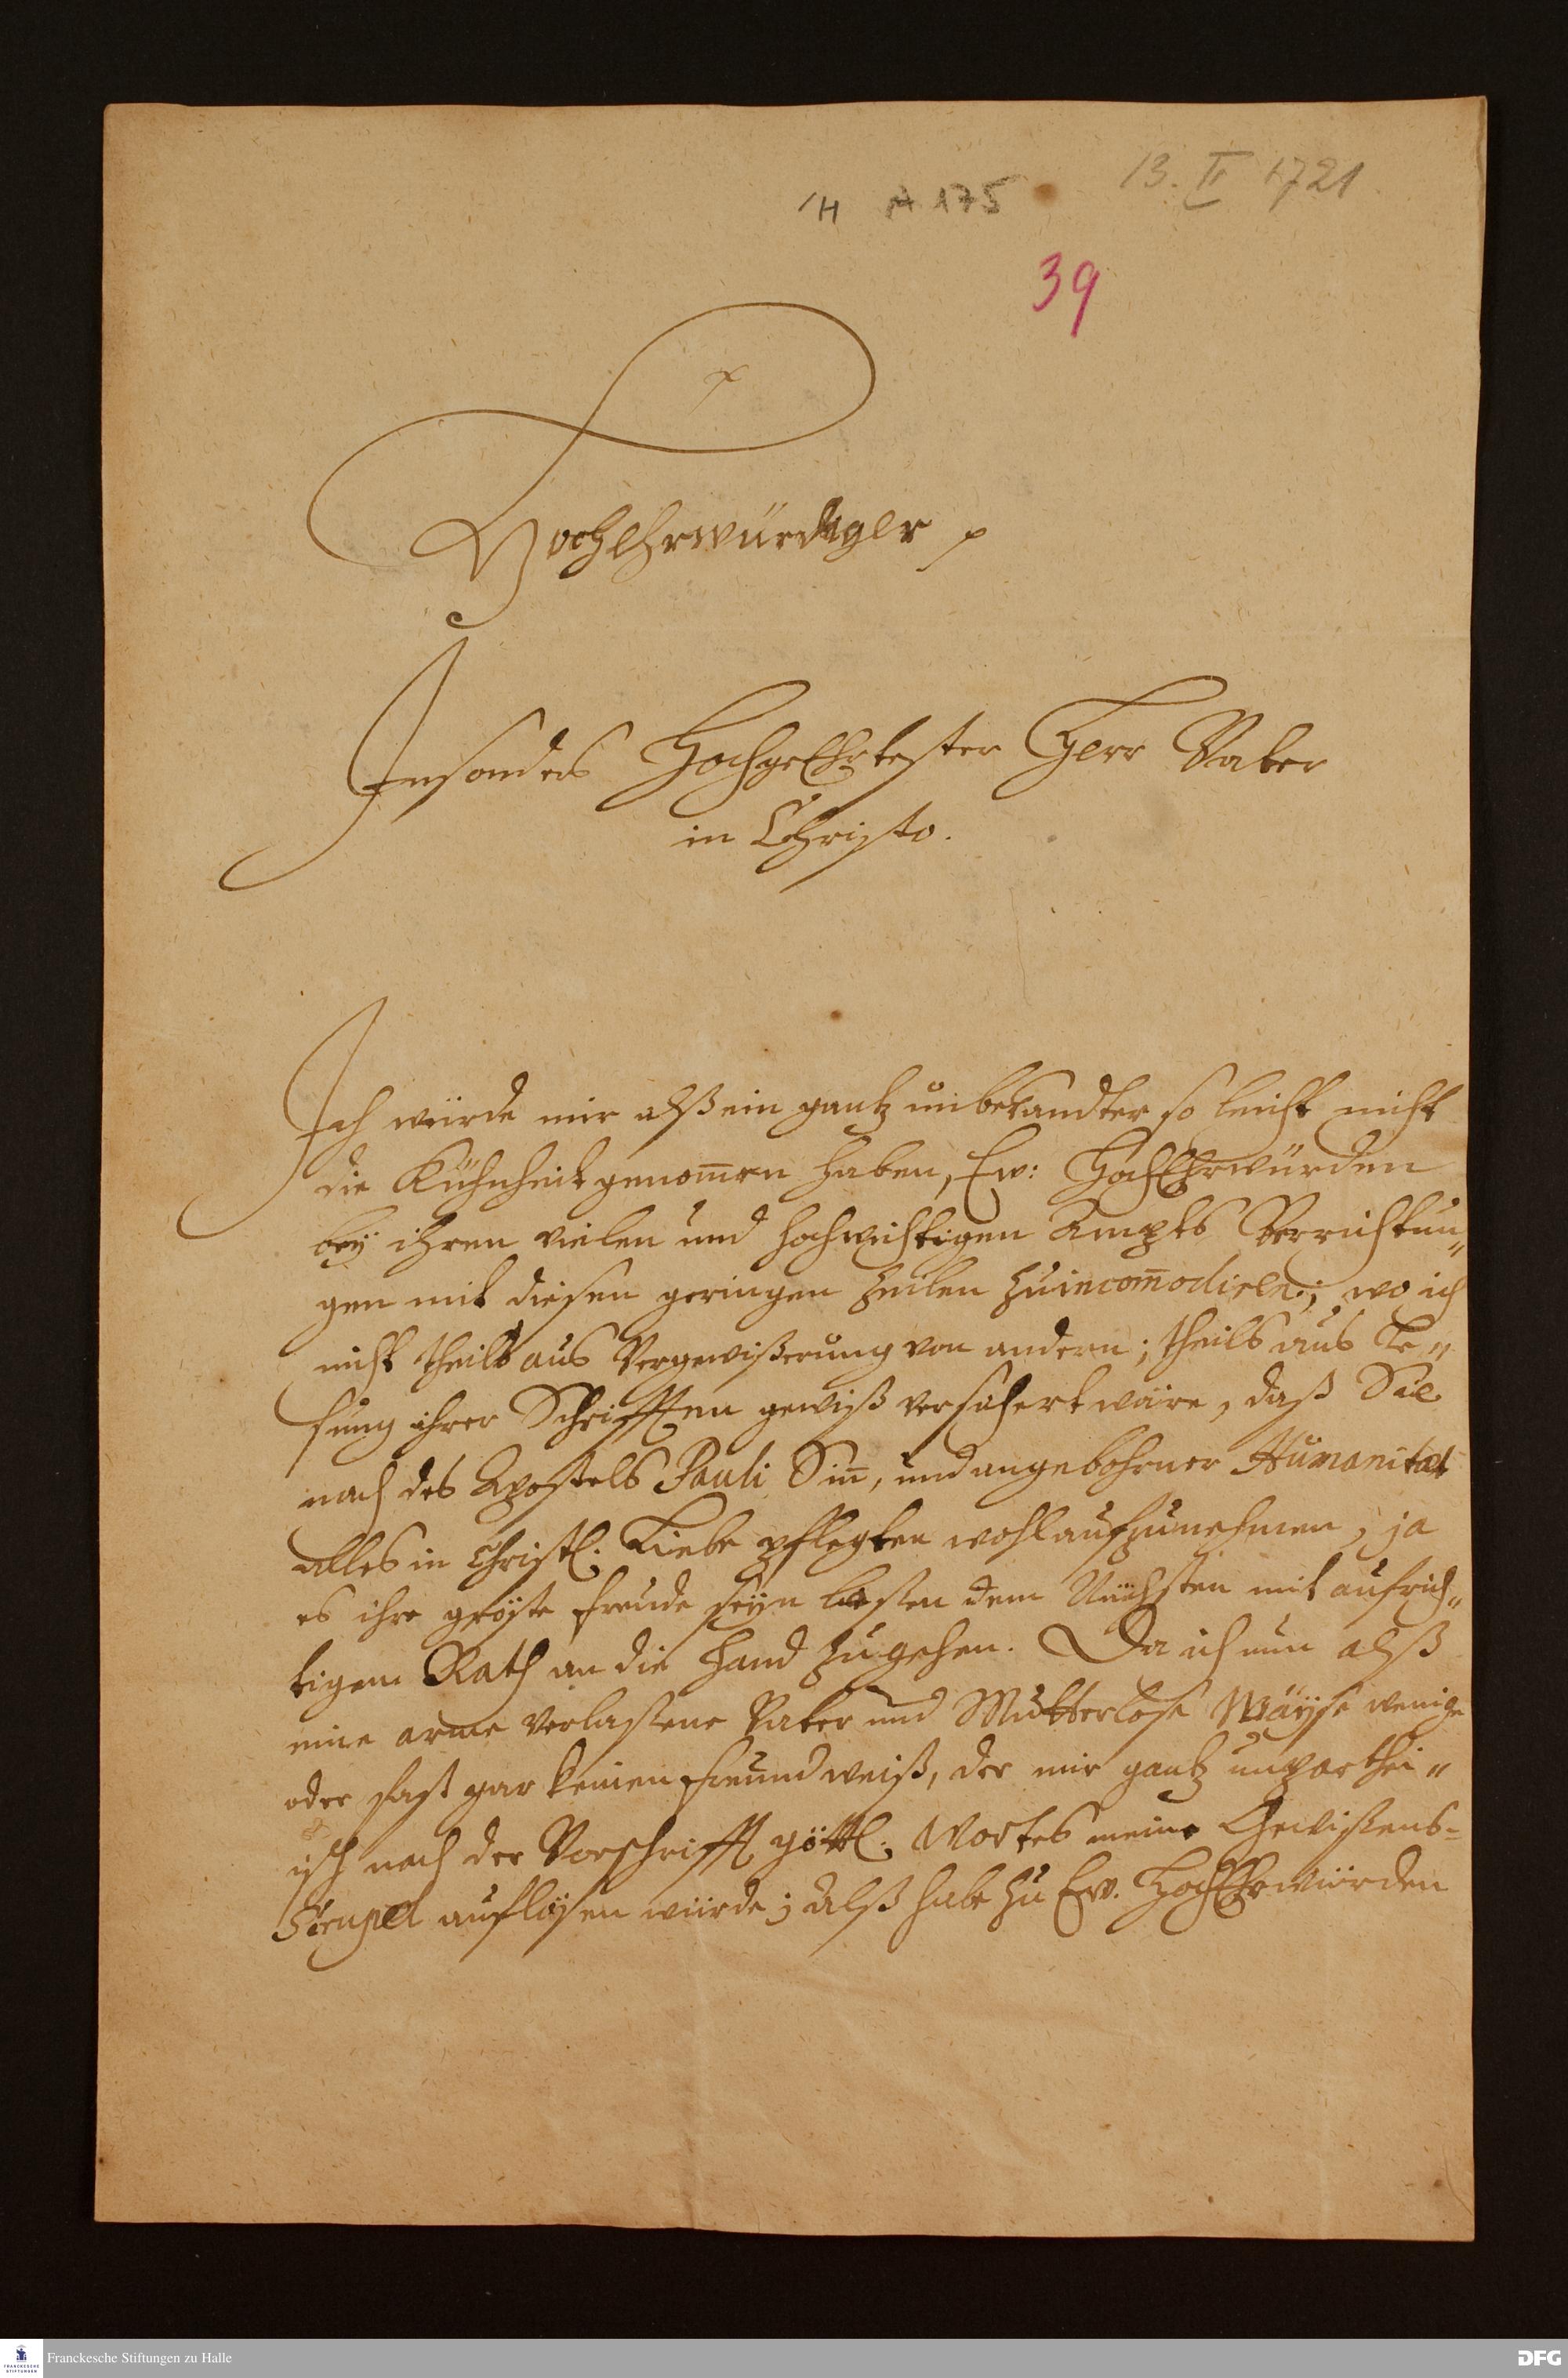 H A 175
13. II 1721
39
Hochehrwürdiger p
Insonders Hochgeehrtester Herr Vater
in Christo.
Ich würde mir alß ein gantz unbekandter so leicht nicht
die Kühnheit genom̅en haben, Ew: HochEhrwürden
bey ihren vielen und hochwichtigen Ampts Verrichtun„
gen mit diesen geringen Zeilen zu incom̅odiren; wo ich
nicht theils aus Vergewißerung von andern; theils aus Le„
sung ihrer Schrifften gewiß versichert wäre, daß Sie
nach des Apostels Pauli Sin̅, und angebohrner Humanitæt
alles in Christl. Liebe pflegten wohl aufzunehmen, ja
es ihre gröste Freude seyn ließen dem Nächsten mit aufrich„
tigem Rath an die Hand zu gehen. Da ich nun alß
eine arme verlaßene Vater und Mutterlose Wäyse wenige
oder fast gar keinen Freund weiß, der mir gantz unparthei„
isch nach der Vorschrifft göttl. Wortes meine Gewißens-
Scrupel auflösen würde; Alß habe zu Ew. HochEhrwürden
Franckesche Stiftungen zu Halle
FRANCKESCHE
STIFTUNGEN
DFG